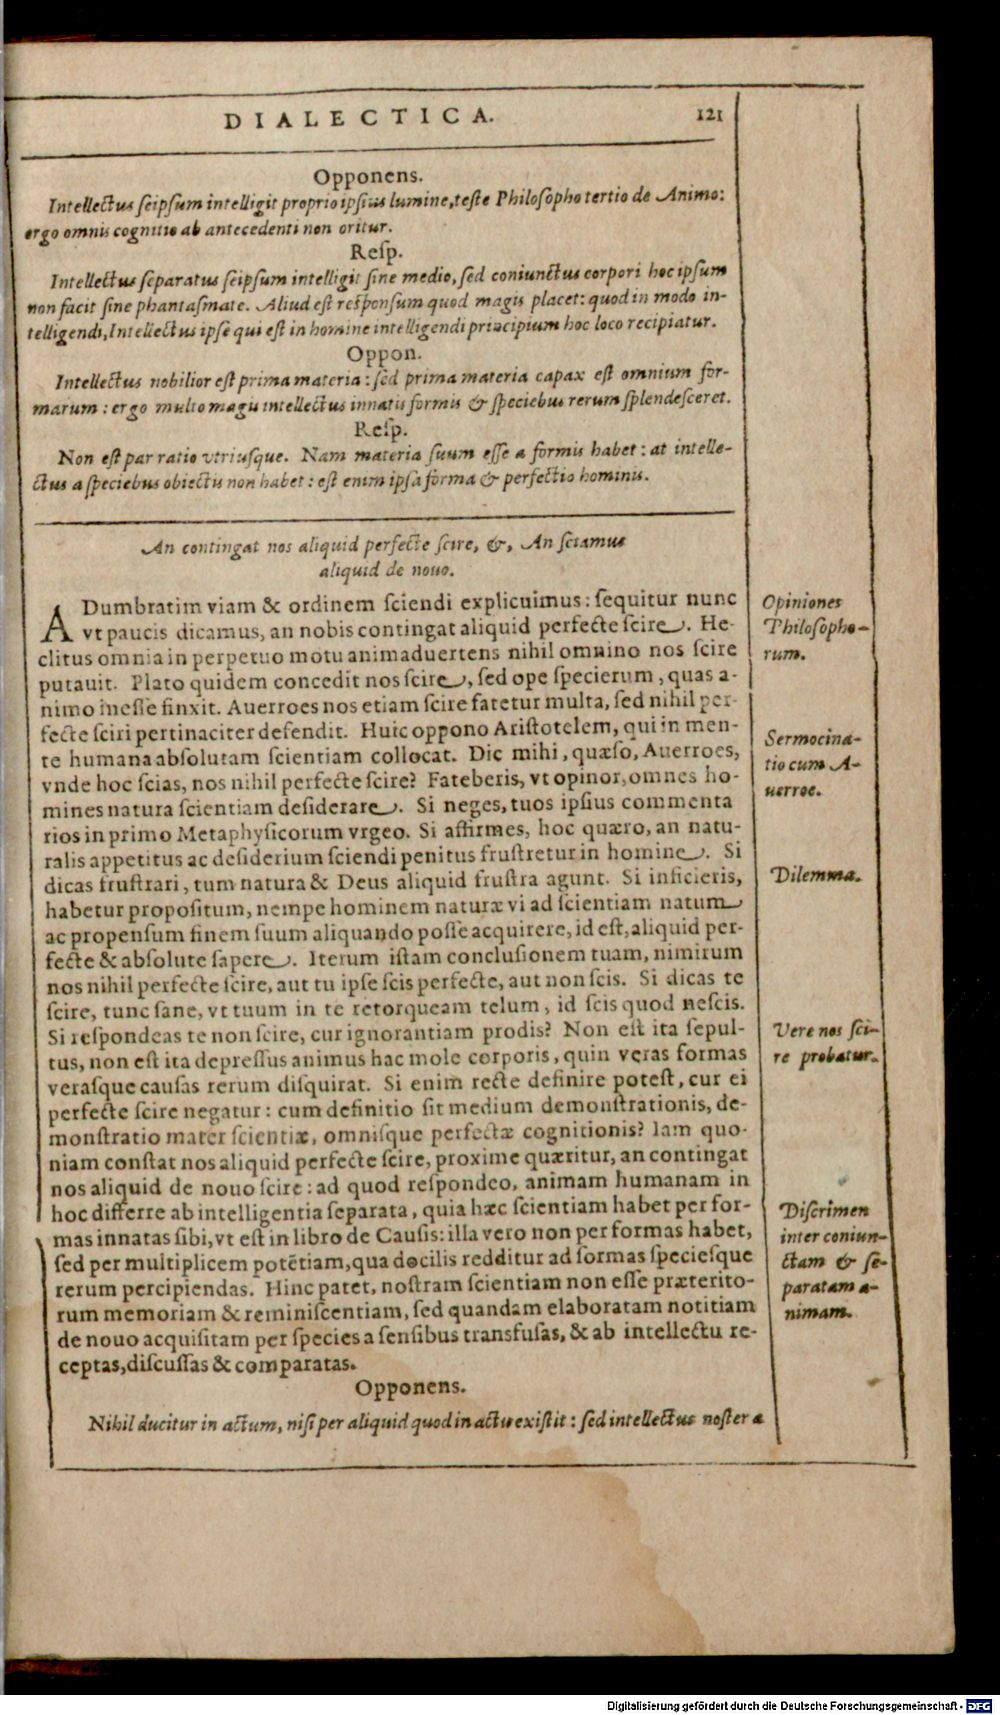 DIALECTICA. 121
Opponens.
Intellectus ſeipſum intelligit proprio ipſius lumine, teſte Philoſopho tertio de Animo:
ergo omnis cognitio ab antecedenti non oritur.
Reſp.
Intellectus ſeparatus ſeipſum intelligit ſine medio, ſed coniunctus corpori hoc ipſum
non facit ſine phantaſmate. Aliud eſt reſponſum quod magis placet: quod in modo in-
telligendi, Intellectus ipſe qui eſt in homine intelligendi principium hoc loco recipiatur.
Oppon.
Intellectus nobilior eſt prima materia: ſed prima materia capax eſt omnium for-
marum: ergo multo magis intellectus innatis formis & ſpeciebus rerum ſplendeſceret.
Reſp.
Non eſt par ratio vtriuſque. Nam materia ſuum eſſe a formis habet: at intelle-
ctus a ſpeciebus obiectis non habet: eſt enim ipſa forma & perfectio hominis.
An contingat nos aliquid perfecte ſcire, &, An ſciamus
aliquid de nouo.
ADumbratim viam & ordinem ſciendi explicuimus: ſequitur nunc
vt paucis dicamus, an nobis contingat aliquid perfecte ſcire. He-
clitus omnia in perpetuo motu animaduertens nihil omnino nos ſcire
putauit. Plato quidem concedit nos ſcire, ſed ope ſpecierum, quas a-
nimo ineſſe finxit. Auerroes nos etiam ſcire fatetur multa, ſed nihil per-
fecte ſciri pertinaciter defendit. Huic oppono Ariſtotelem, qui in men-
te humana abſolutam ſcientiam collocat. Dic mihi, quæſo, Auerroes,
vnde hoc ſcias, nos nihil perfecte ſcire? Fateberis, vt opinor, omnes ho-
mines natura ſcientiam deſiderare. Si neges, tuos ipſius commenta
rios in primo Metaphyſicorum vrgeo. Si affirmes, hoc quæro, an natu-
ralis appetitus ac deſiderium ſciendi penitus fruſtretur in homine. Si
dicas fruſtrari, tum natura & Deus aliquid fruſtra agunt. Si inficieris,
habetur propoſitum, nempe hominem naturæ vi ad ſcientiam natum
ac propenſum finem ſuum aliquando poſſe acquirere, id eſt, aliquid per-
fecte & abſolute ſapere. Iterum iſtam concluſionem tuam, nimirum
nos nihil perfecte ſcire, aut tu ipſe ſcis perfecte, aut non ſcis. Si dicas te
ſcire, tunc ſane, vt tuum in te retorqueam telum, id ſcis quod neſcis.
Si reſpondeas te non ſcire, cur ignorantiam prodis? Non eſt ita ſepul-
tus, non eſt ita depreſſus animus hac mole corporis, quin veras formas
veraſque cauſas rerum diſquirat. Si enim recte definire poteſt, cur ei
perfecte ſcire negatur: cum definitio ſit medium demonſtrationis, de-
monſtratio mater ſcientiæ, omniſque perfectæ cognitionis? Iam quo-
niam conſtat nos aliquid perfecte ſcire, proxime quæritur, an contingat
nos aliquid de nouo ſcire: ad quod reſpondeo, animam humanam in
hoc differre ab intelligentia ſeparata, quia hæc ſcientiam habet per for-
mas innatas ſibi, vt eſt in libro de Cauſis: illa vero non per formas habet,
ſed per multiplicem potẽtiam, qua docilis redditur ad formas ſpecieſque
rerum percipiendas. Hinc patet, noſtram ſcientiam non eſſe præterito-
rum memoriam & reminiſcentiam, ſed quandam elaboratam notitiam
de nouo acquiſitam per ſpecies a ſenſibus transfuſas, & ab intellectu re-
ceptas, diſcuſſas & comparatas.
Opponens.
Nihil ducitur in actum, niſi per aliquid quod in actu exiſtit: ſed intellectus noſter a
Opiniones
Philoſopho-
rum.
Sermocina-
tio cum A-
uerroe.
Dilemma.
Vere nos ſci-
re probatur.
Diſcrimen
inter coniun-
ctam & ſe-
paratam a-
nimam.
Digitalisierung gefördert durch die Deutsche Forschungsgemeinschaft - DFG